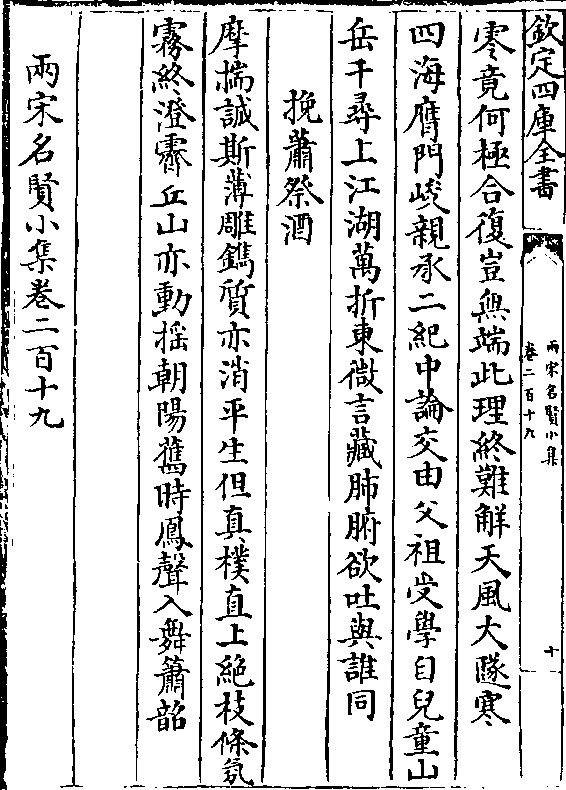 欽定四庫全書
兩宋名賢小集
卷二百十九
十
零竟何極合復豈無端此理終難解天風大隧寒
四海膺門峻親承二紀中論交由父祖受學自兒童山
岳千尋上江湖萬折東微言藏肺腑欲吐與誰同
挽蕭祭酒
摩揣誠斯薄雕鐫質亦消平生但真樸直上絶枝條氛
霧終澄霽丘山亦動搖朝陽舊時鳳聲入舞簫韶
兩宋名賢小集卷二百十九